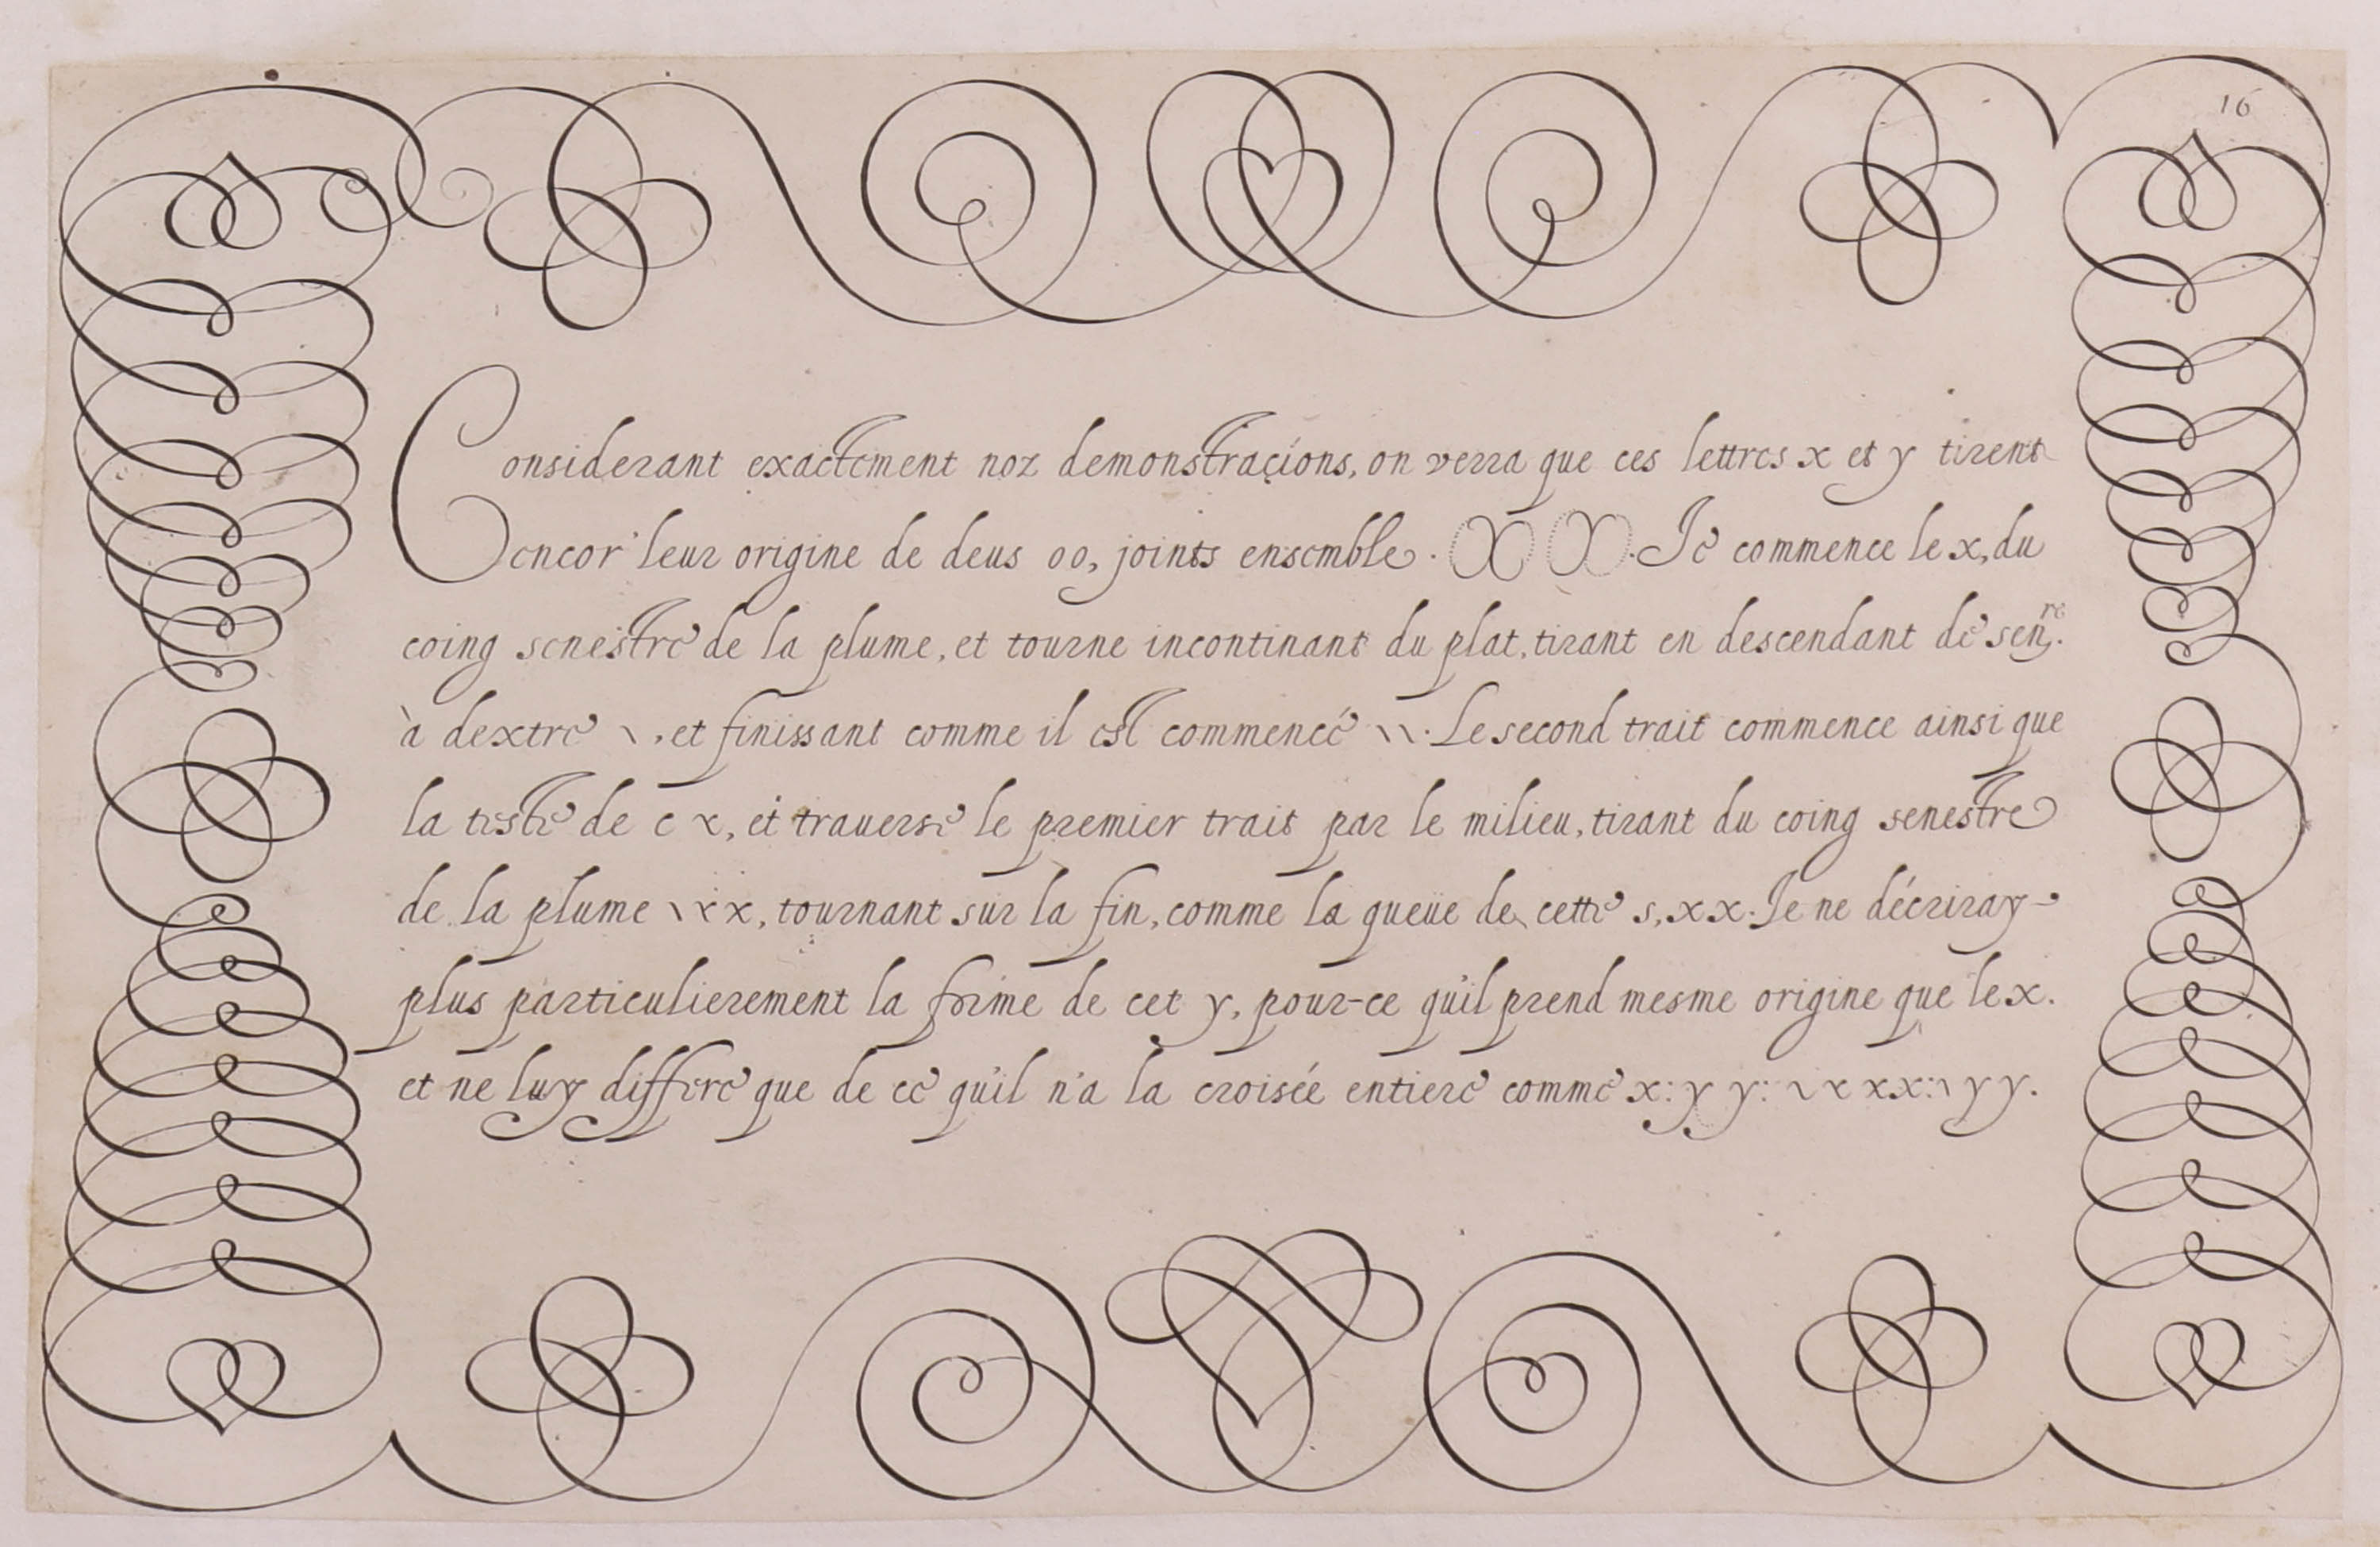 16
Considerant exactement noz demonstraçions, on verra que ces lettres x et y tirent
encor' leur origine de deus oo, joints ensemble. X X. Je commence le x, du
coing senestre de la plume, et tourne incontinant du plat, tirant en descendant de sen.re
à dextre \, et finissant comme il est commencé \\. Le second trait commence ainsi que
la teste de c x, et trauerse le premier trait par le milieu, tirant du coing senestre
de la plume \xx, tournant sur la fin, comme la queüe de cette s, xx. Je ne décriray-
plus particulierement la forme de cet y, pour-ce qu'il prend mesme origine que le x.
et ne luy differe que de ce qu'il n'a la croisée entiere comme x: y y: \x xx: \y y.